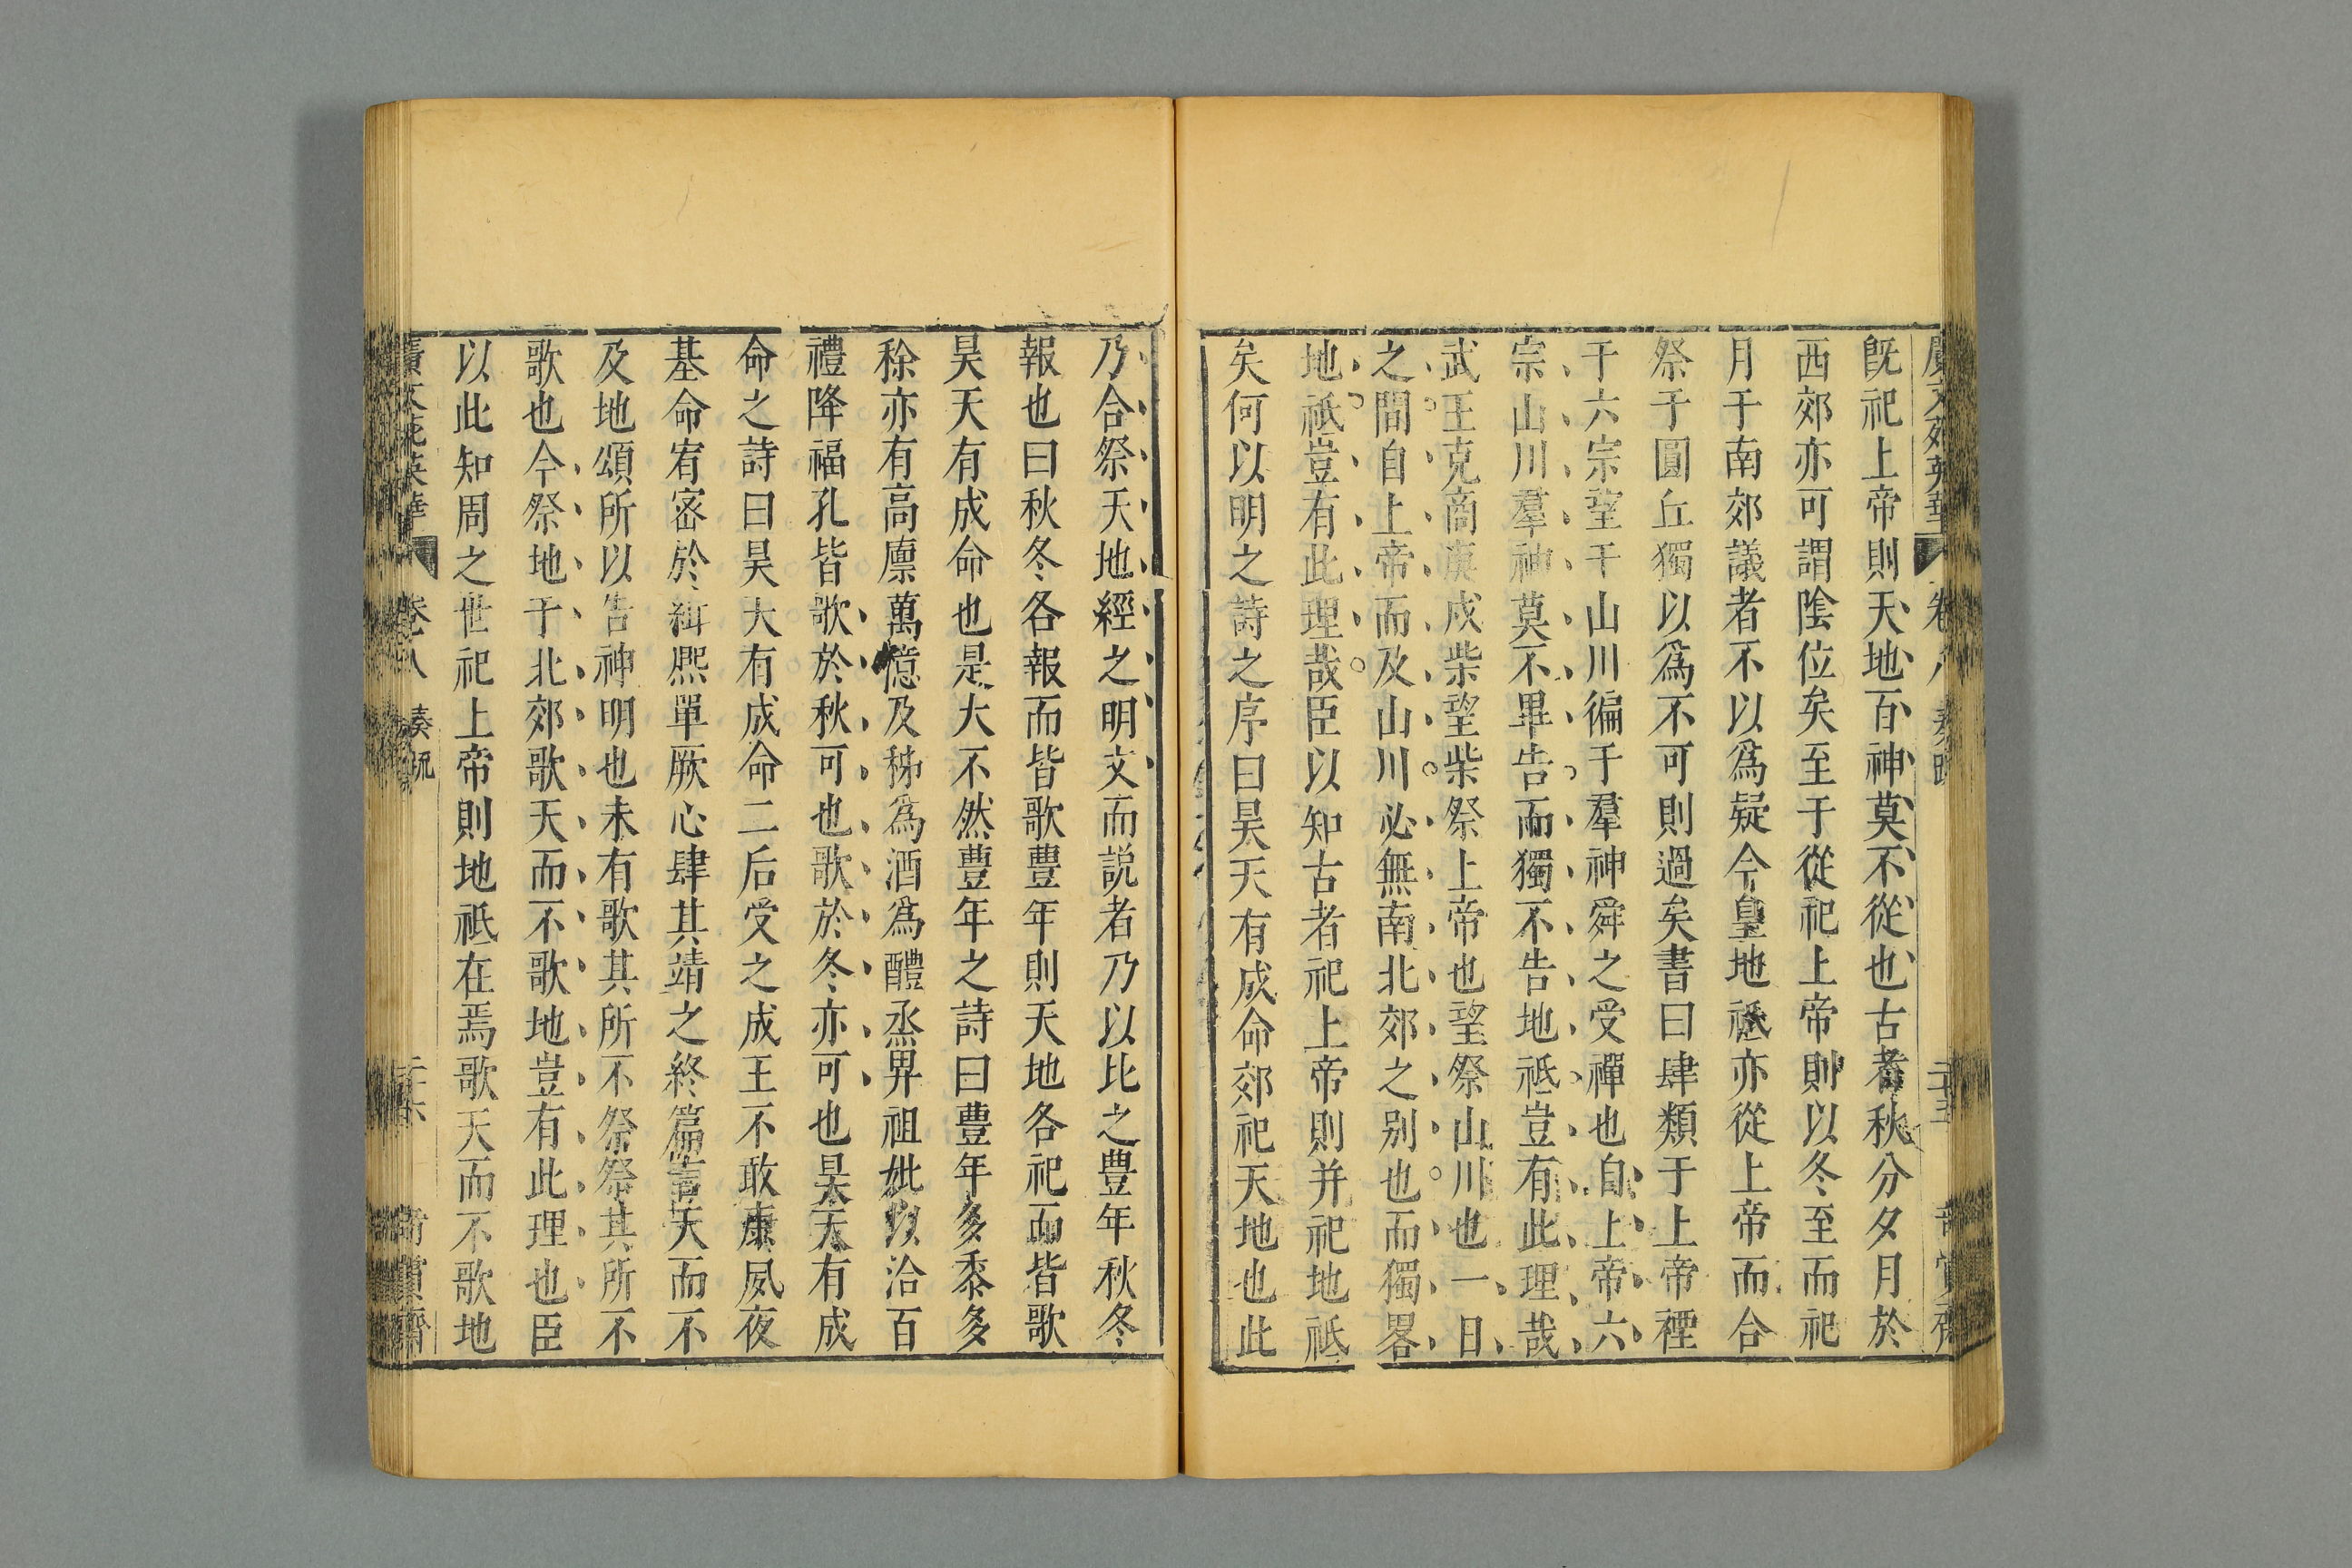 既祀上帝則天地百神莫不從也古者秋分夕月於
西郊亦可謂陰位矣至于從祀上帝則以冬至而祀
月于南郊議者不以爲疑今皇地祗亦從上帝而合
祭于圓丘獨以爲不可則過矣書曰肆類于上帝禋
于六宗望于山川徧于羣神舜之受禪也自上帝六
宗山川羣神莫不畢告而獨不告地祗豈有此理哉
武王克商庚戌柴望柴祭上帝也望祭山川也一日
之間自上帝而及山川必無南北郊之别也而獨畧
地祗豈有此理哉臣以知古者祀上帝則并祀地祗
矣何以明之詩之序曰昊天有成命郊祀天地也此
乃合祭天地經之明文而説者乃以比之豊年秋冬
報也曰秋冬各報而皆歌豊年則天地各祀而皆歌
昊天有成命也是大不然豊年之詩曰豊年多黍多
稌亦有高廪萬億及秭爲酒爲醴烝畀祖妣以洽百
禮降福孔皆歌於秋可也歌於冬亦可也昊天有成
命之詩曰昊天有成命二后受之成王不敢康夙夜
基命宥宻於緝熈單厥心肆其靖之終篇言天而不
及地頌所以告神明也未有歌其所不祭祭其所不
歌也今祭地于北郊歌天而不歌地豈有此理也臣
以此知周之世祀上帝則地祗在焉歌天而不歌地
廣文苑英華 卷八 奏疏 二十六